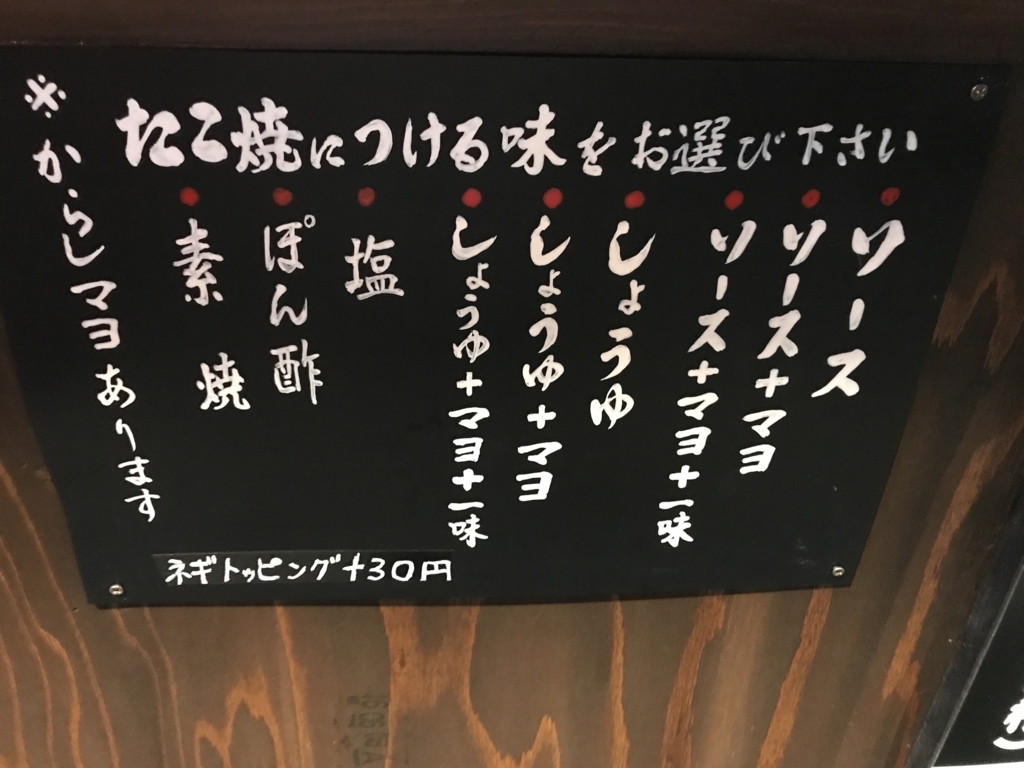 たこ焼につける味をお選び下さい
ソース
ソース+マヨ
ソース+マヨ+一味
しょうゆ
しょうゆ+マヨ
しょうゆ+マヨ+一味
塩
ぽん酢
素焼
※からしマヨあります
ネギトッピング+30円